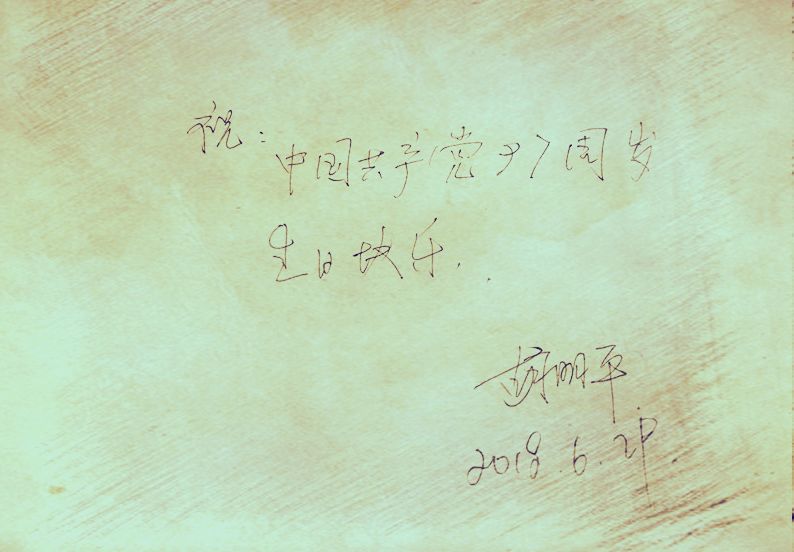 祝：中国共产党97周岁
生日快乐．
明平
2018.6.29.